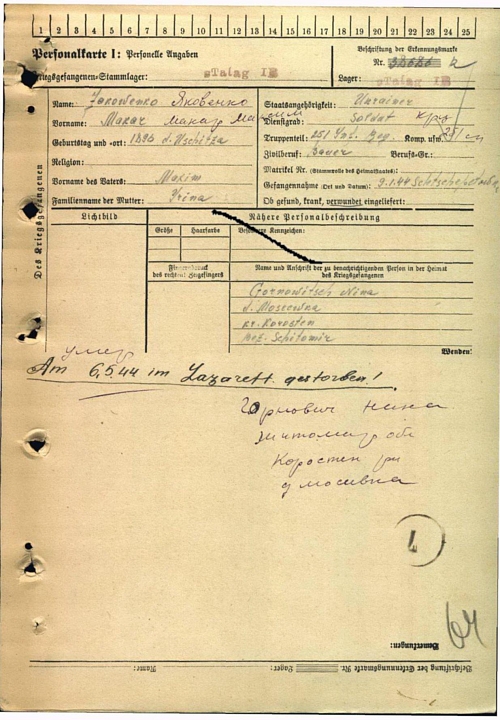 1 2 3 4 5 6 7 8 9 10 11 12 13 14 15 16 17 18 19 20 21 22 23 24 25
Personalkarte I: Personelle Angaben
Kriegsgefangenen-Stammlager: Stalag
Beschriftung der Erkennungsmarke
Nr.
Lager: Stalag
Des Kriegsgefangenen
Name: Jakowenko Яковенко
Vorname: Makar Макар Максим
Geburtstag und -ort: 1896 d. Uschitza
Religion:
Vorname des Vaters: Maxim
Familienname der Mutter: Irina
Staatsangehörigkeit: Ukrainer
Dienstgrad: Soldat
Truppenteil: 251 Komp. usw.
Zivilberuf: Bauer Berufs-Gr.:
Matrikel Nr. (Stammrolle des Heimatstaates):
Gefangennahme (Ort und Datum): 9.1.44
Ob gesund, krank, verwundet eingeliefert:
Lichtbild
Nähere Personalbeschreibung
Größe Haarfarbe Besondere Kennzeichen:
Fingerabdruck
des rechten Zeigefingers
Name und Anschrift der zu benachrichtigenden Person in der Heimat
des Kriegsgefangenen
Gornowitsch Nina
d. Moseewna
kr. Korosten
Schitomir
Wenden!
умер
Am 6.5.44 im Lazarett gestorben!
Горнович Нина
Житомир обл
Коростен рн
д мосивка
64
Bemerkungen:
Beschriftung der Erkennungsmarke Nr. Lager: Name: